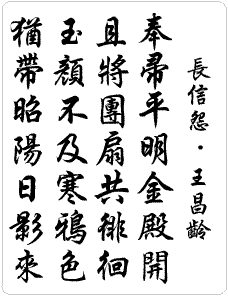 長信怨・王昌齡
奉帚平明金殿開
且將團扇共徘徊
玉顏不及寒鴉色
猶帶昭陽日影來